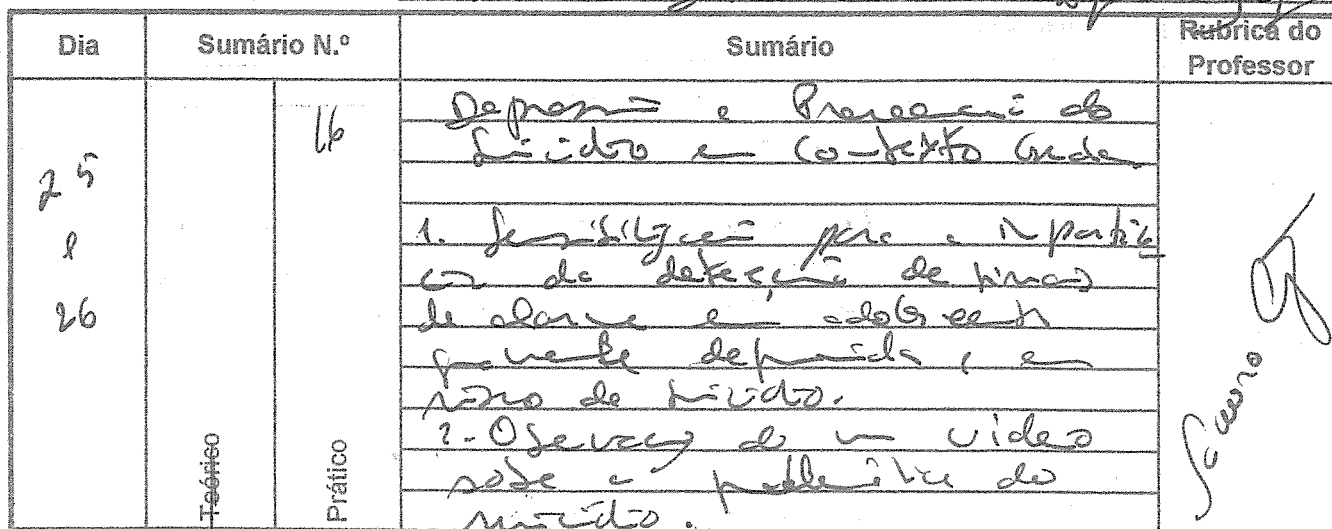 Dia Sumário N.º Sumário Rubrica do Professor
25
26
Teórico
Prático
16
Depressão e Prevenção do
Suicídio em Contexto
1. Sensibilização para a importân
cia da deteção de sinais
de alarme em adolescentes
gravemente deprimidos, em
risco de suicídio.
2. Observação de um vídeo
sobre a problemática do
suicídio.